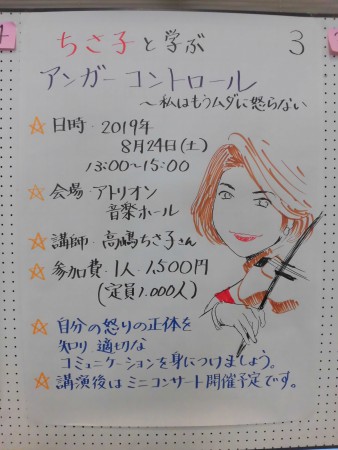 ちさ子と学ぶ 3
アンガーコントロール
～私はもうムダに怒らない
☆日時・2019年
8月24日(土)
13:00～15:00
☆会場・アトリオン
音楽ホール
☆講師・高嶋ちさ子さん
☆参加費・1人 1,500円
(定員1.000人)
☆自分の怒りの正体を
知り 適切な
コミュニケーションを身につけましょう。
☆講演後はミニコンサート開催予定です。